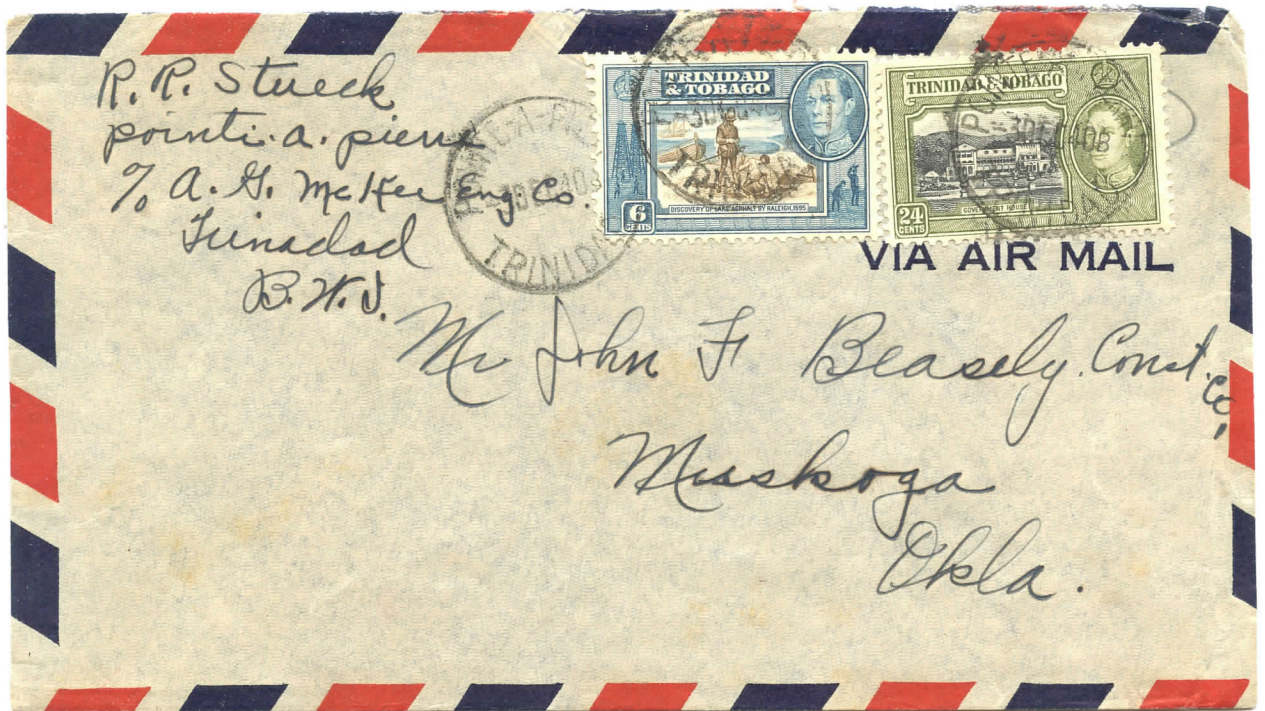 R. R. Stueck
pointi. a. pierre
c/o A. G. McKee Eng. Co.
Trinadad
B. W. I.
TRINIDAD
& TOBAGO
6
CENTS
DISCOVERY OF LAKE ASPHALT BY RALEIGH, 1595
TRINIDAD & TOBAGO
24
CENTS
GOVERNMENT HOUSE
TRINIDAD
VIA AIR MAIL
Mr John F Beasely. Const. Co,
Muskoga
Okla.